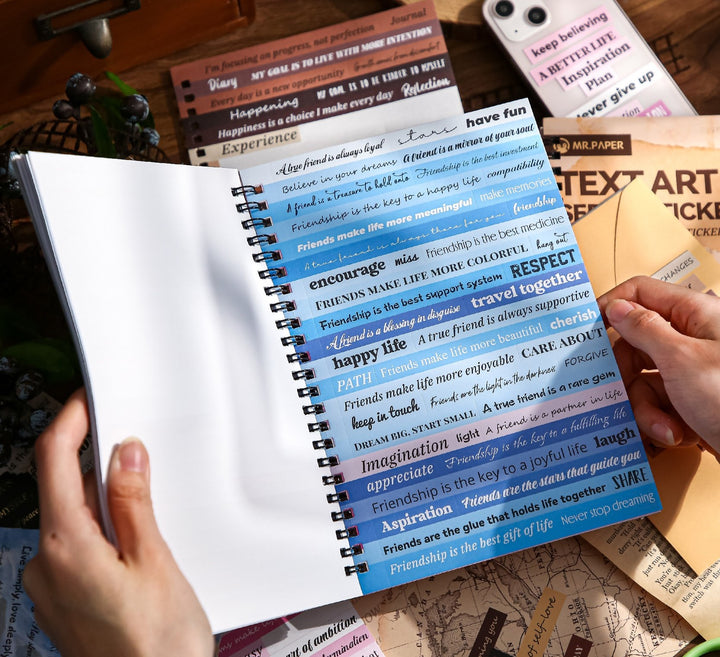 Journal
I'm focusing on progress, not perfection.
Diary MY GOAL IS TO LIVE WITH MORE INTENTION
Every day is a new opportunity Growth comes from discomfort.
Happening MY GOAL IS TO BE KINDER TO MYSELF
Happiness is a choice I make every day Reflection
Experience
keep believing
A BETTER LIFE
Inspiration
Plan
Never give up
MR.PAPER
TEXT ART
CHANGES
A true friend is always loyal stars have fun
Believe in your dreams A friend is a mirror of your soul
A friend is a treasure to hold onto Friendship is the best investment
Friendship is the key to a happy life compatibility
Friends make life more meaningful make memories
A true friend is always there for you friendship
encourage miss Friendship is the best medicine
FRIENDS MAKE LIFE MORE COLORFUL hang out
Friendship is the best support system RESPECT
A friend is a blessing in disguise travel together
happy life A true friend is always supportive
PATH Friends make life more beautiful cherish
Friends make life more enjoyable CARE ABOUT
keep in touch Friends are the light in the darkness FORGIVE
DREAM BIG, START SMALL A true friend is a rare gem
Imagination light A friend is a partner in life
appreciate Friendship is the key to a fulfilling life
Friendship is the key to a joyful life laugh
Aspiration Friends are the stars that guide you
Friends are the glue that holds life together SHARE
Friendship is the best gift of life Never stop dreaming
Live simply, love deeply
art of ambition
determination
of self love